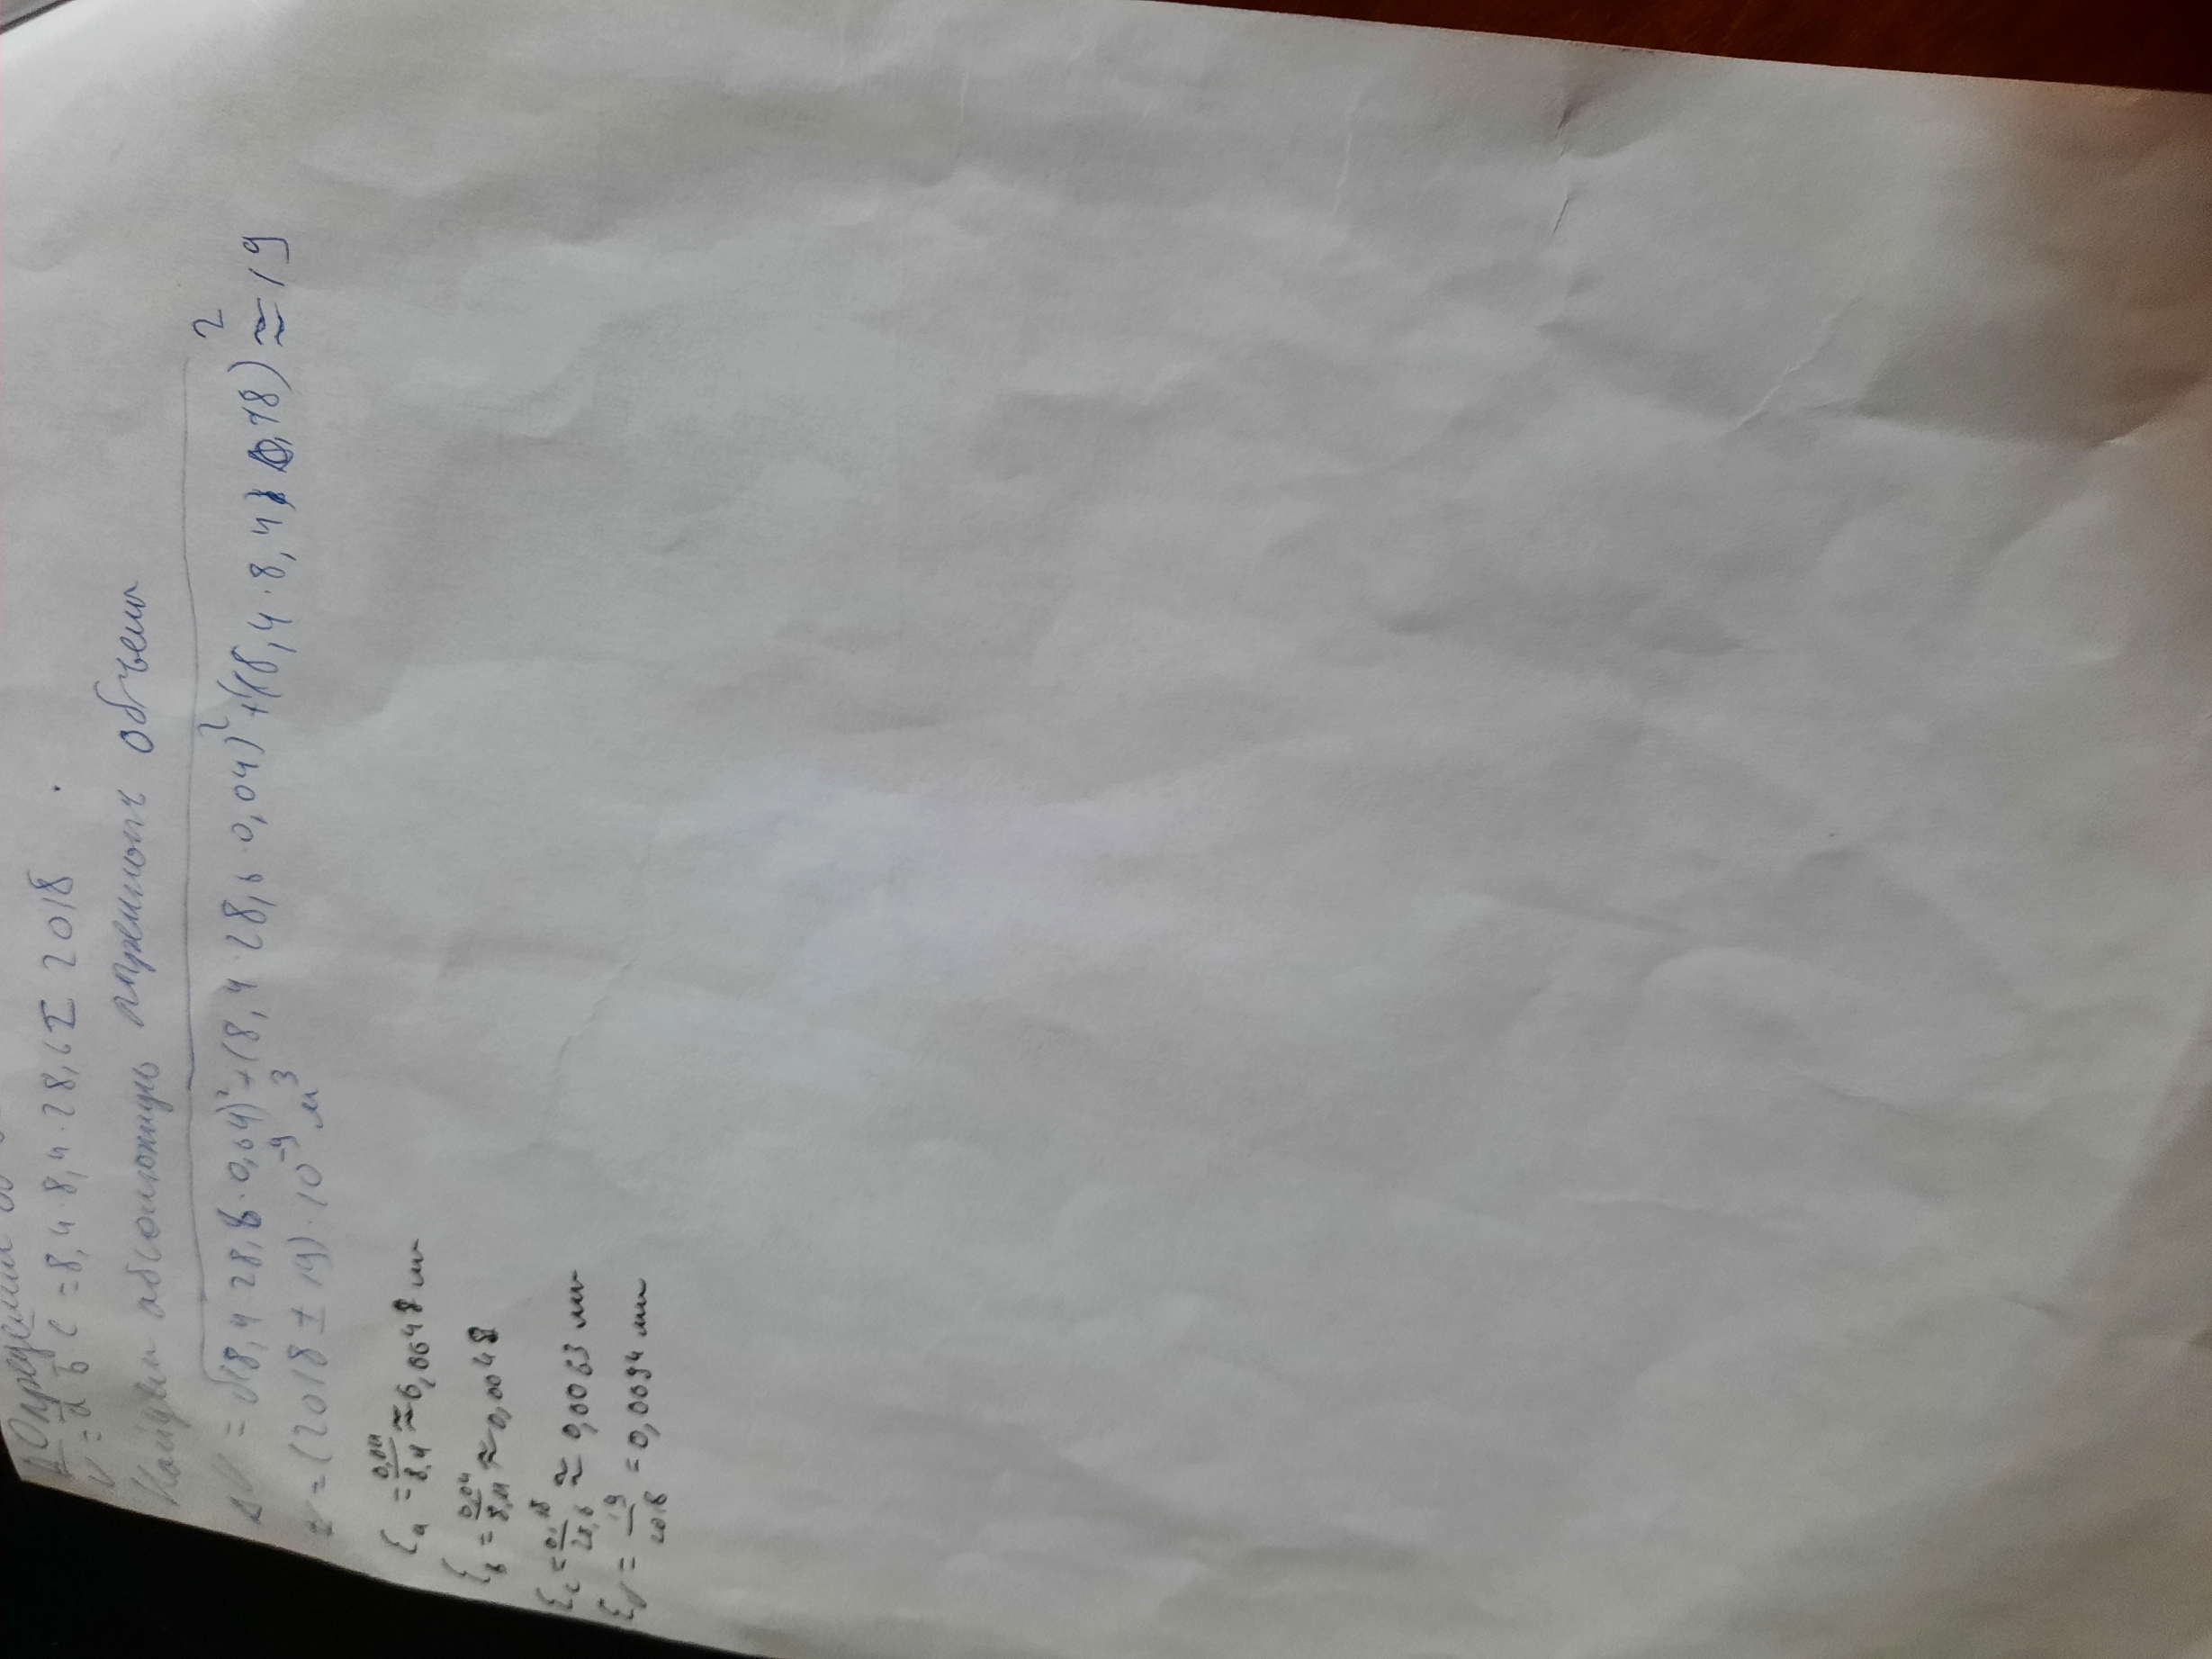 Определим
V = a b c = 8,4·8,4·28,6 = 2018
Найдем абсолютную погрешность объема
ΔV = √(8,4·28,6·0,04)²+(8,4·28,6·0,04)²+(8,4·8,4·0,18)² ≈ 19
V = (2018 ± 19)·10⁻⁹ м³
Ea = 0,04/8,4 ≈ 0,0048 мм
Eb = 0,04/8,4 ≈ 0,0048
Ec = 0,18/28,6 ≈ 0,0063 мм
EV = 19/2018 = 0,0094 мм